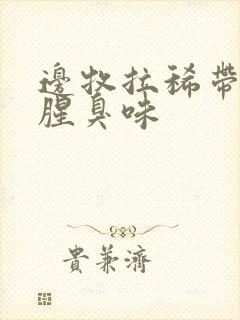 邊牧拉稀帶
腥臭味
貴兼濟